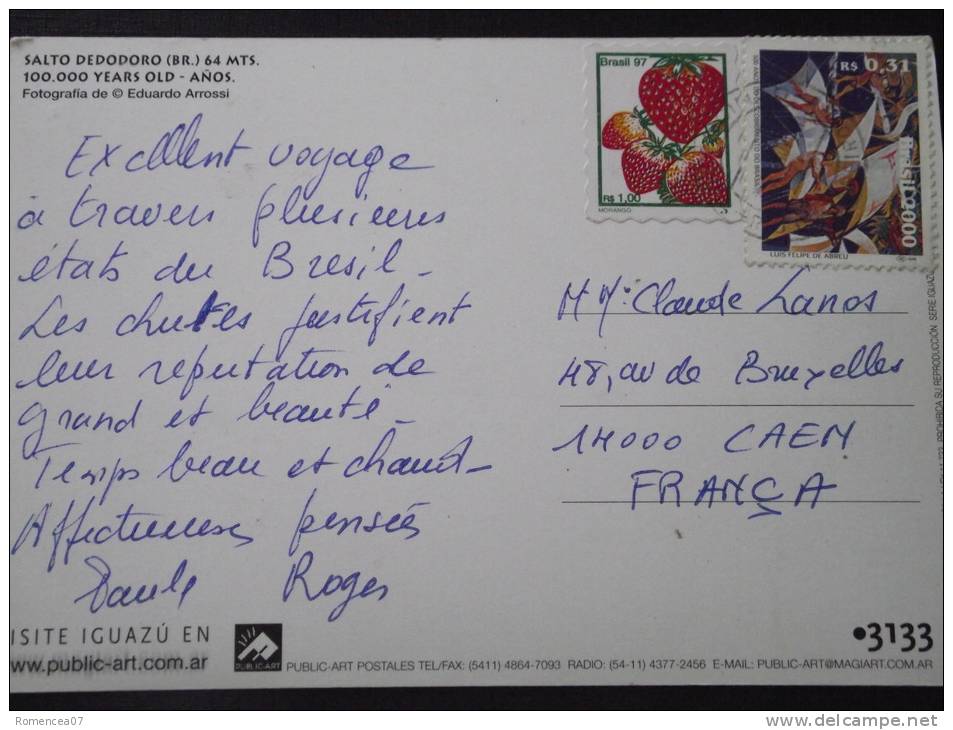 SALTO DEDODORO (BR.) 64 MTS.
100.000 YEARS OLD - AÑOS.
Fotografía de © Eduardo Arrossi
Brasil 97
R$ 1,00
MORANGO
R$ 0,31
Brasil 2000
LUIS FELIPE DE ABREU
Excellent voyage
à travers plusieurs
états du Bresil -
Les chutes justifient
leur reputation de
grand et beauté -
Temps beau et chaud -
Affectueuses pensées
Paule Roger
Claude Lanos
48, av de Bruxelles
14000 CAEN
FRANÇA
PROHIBIDA SU REPRODUCCIÓN SERIE IGUAZÚ
ISITE IGUAZÚ EN
www.public-art.com.ar
PUBLIC-ART
PUBLIC-ART POSTALES TEL/FAX: (5411) 4864-7093 RADIO: (54-11) 4377-2456 E-MAIL: PUBLIC-ART@MAGIART.COM.AR
•3133
Romencea07
www.delcampe.net